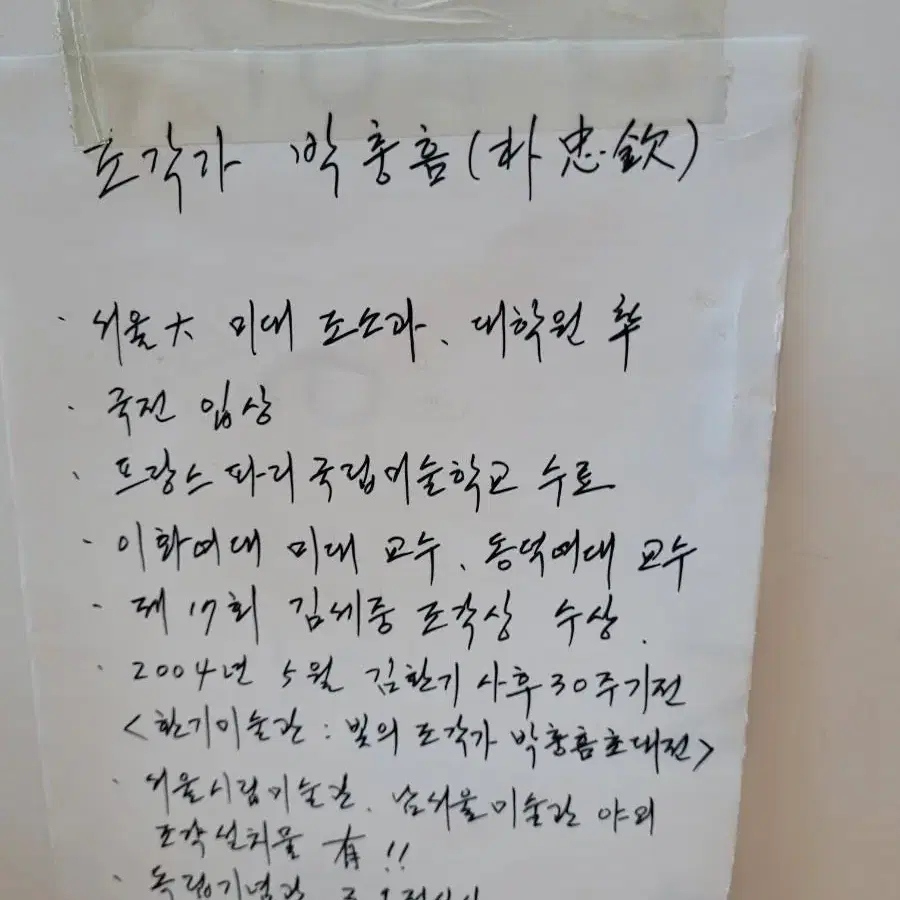 조각가 박충흠(朴忠欽)
· 서울大 미대 조소과、대학원 卒
· 국전 입상
· 프랑스 파리 국립미술학교 수료
· 이화여대 미대 교수、동덕여대 교수
· 제17회 김세중 조각상 수상.
· 2004년 5월 김환기 사후 30주기전
<환기미술관 : 빛의 조각가 박충흠 초대전>
· 서울시립미술관、남서울미술관 야외
조각설치물 有!!
· 독립기념관